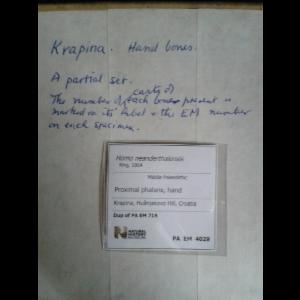 Krapina. Hand bones.
A partial set.
casts of
The number of each bone present is
marked on its label + the EM number
on each specimen.
Homo neanderthalensis
King, 1864
Middle Palaeolithic
Proximal phalanx, hand
Krapina, Hušnjakovo Hill, Croatia
Dup of PA EM 719
NATURAL
HISTORY
MUSEUM
PA EM 4029